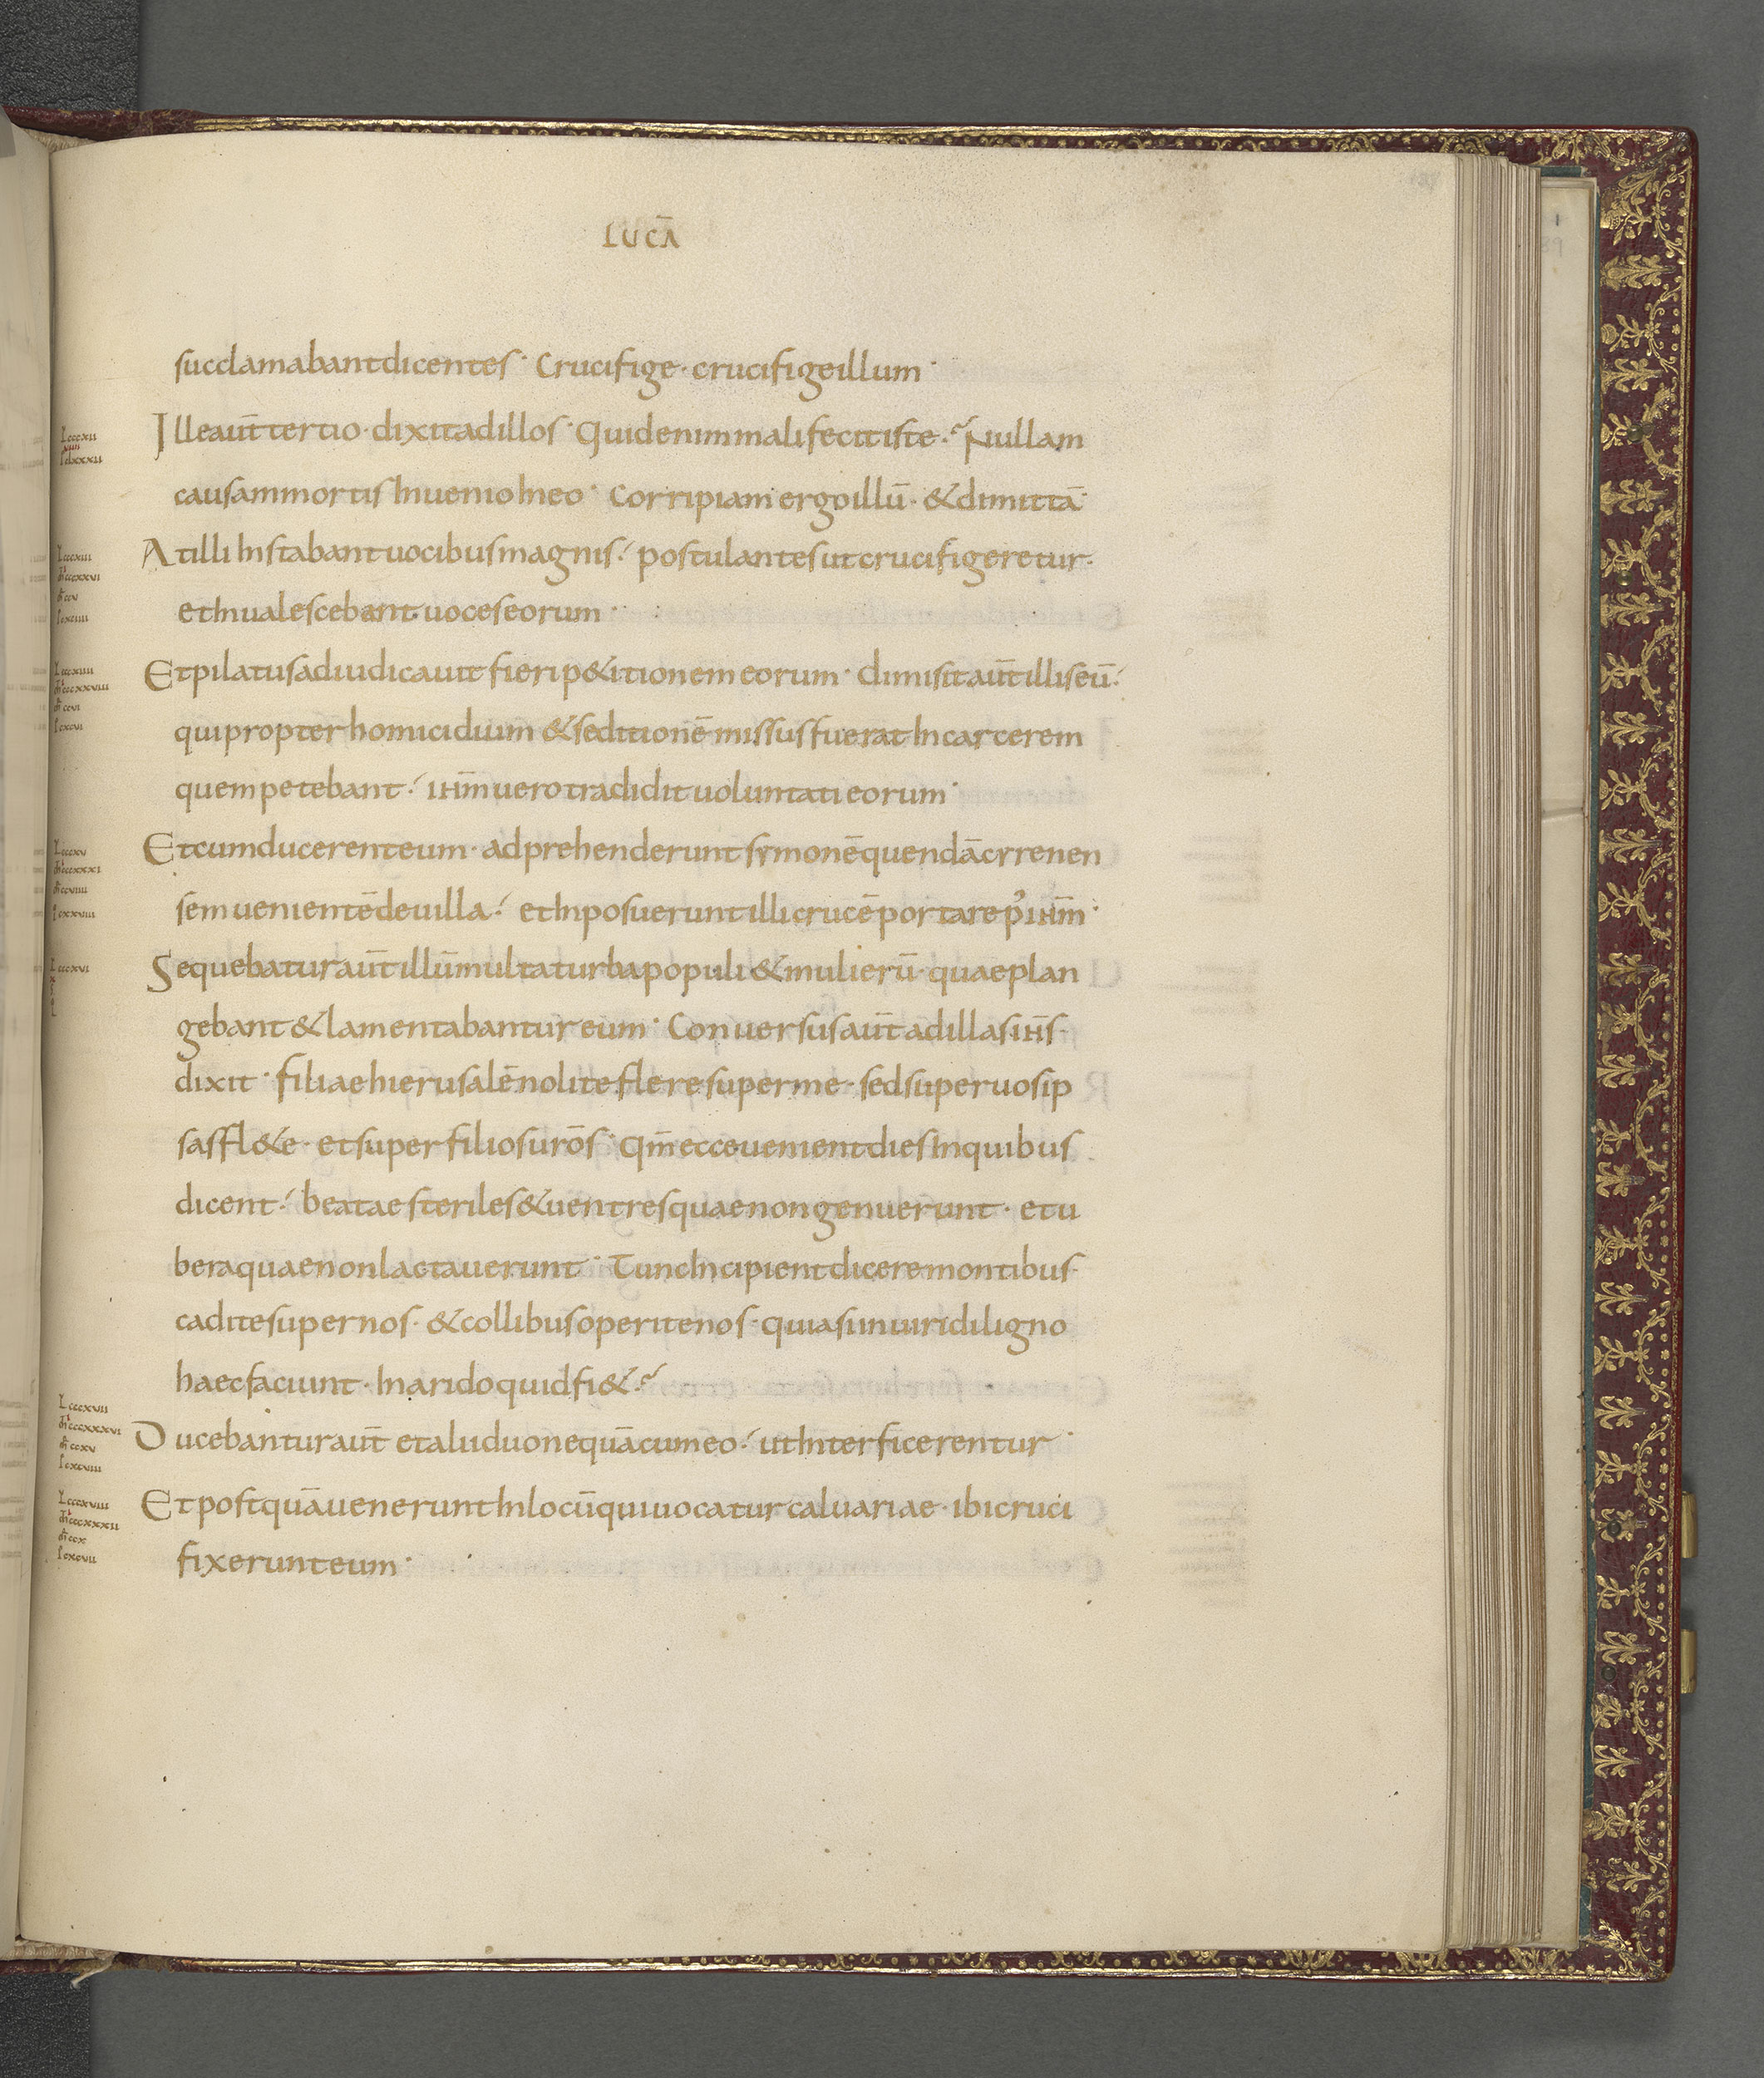 LUCĀ
succlamabant dicentes· Crucifige· crucifige illum·
Ille aūt tertio· dixit ad illos· Quid enim mali fecit iste·? Nullam
causam mortis Inuenio In eo· Corripiam ergo illū· & dimittā·
At illi Instabant uocibus magnis· postulantes ut crucifigeretur·
et Inualescebant uoces eorum·
Et pilatus adiudicauit fieri p&itionem eorum· dimisit aūt illis eū·
qui propter homicidium & seditionē missus fuerat In carcerem
quem petebant· ihm̄ uero tradidit uoluntati eorum·
Et cum ducerent eum· adprehenderunt symonē quendā cyrenen
sem uenientē de uilla· et Inposuerunt illi crucē portare p᾽ ihm̄·
Sequebatur aūt illū multa turba populi & mulierū· quae plan
gebant & lamentabantur eum· Conuersus aūt ad illas ihs̄·
dixit· filiae hierusalē nolite flere super me· sed super uos ip
sas fl&e· et super filios urōs· Qm̄ ecce uenient dies In quibus
dicent· beatae steriles & uentres quae non genuerunt· et u
bera quae non lactauerunt· Tunc Incipient dicere montibus
cadite super nos· & collibus operite nos· quia si in uiridi ligno
haec faciunt· In arido quid fi&·?
Ducebantur aūt et alii duo nequā cum eo· ut Interficerentur·
Et postquā uenerunt In locū qui uocatur caluariae· ibi cruci
fixerunt eum·